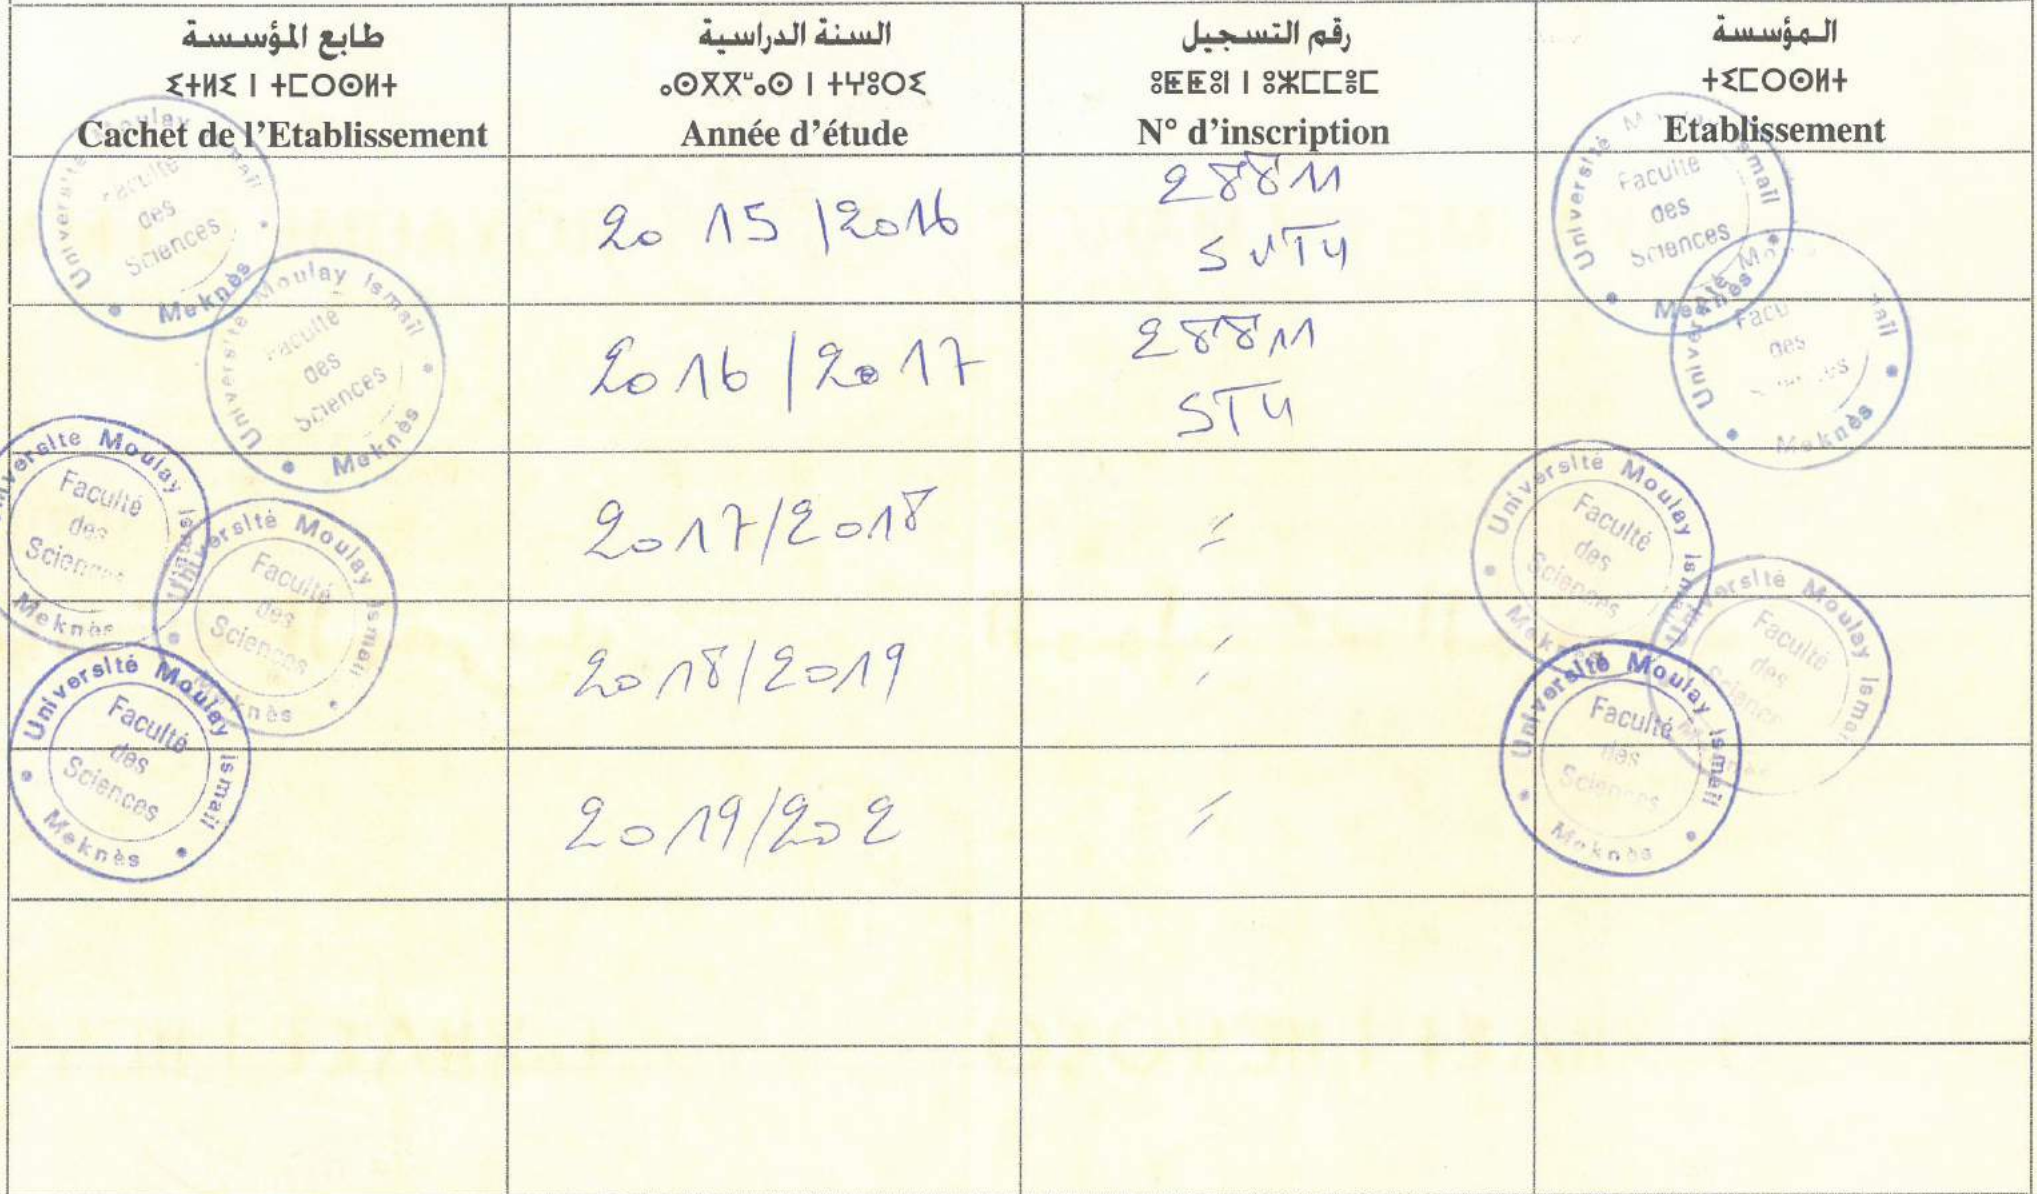 طابع المؤسسة
ⵉⵜⵍⵉ ⵏ ⵜⵎⵔⵙⵍⵜ
Cachet de l'Etablissement
السنة الدراسية
ⴰⵙⴳⴳⵯⴰⵙ ⵏ ⵜⵖⵓⵔⵉ
Année d'étude
رقم التسجيل
ⵓⵟⵟⵓⵏ ⵏ ⵓⵣⵎⵎⴻⵎ
N° d'inscription
المؤسسة
ⵜⵉⵎⵔⵙⵍⵜ
Etablissement
Université Moulay Ismail
Faculté
des
Sciences
Meknès
2015/2016
28811
SVTU
Université Moulay Ismail
Faculté
des
Sciences
Meknès
Université Moulay Ismail
Faculté
des
Sciences
Meknès
2016/2017
28811
STU
Université
Meknès
Université Moulay Ismail
Faculté
des
Sciences
Meknès
2017/2018
〃
Université Moulay Ismail
Faculté
des
Sciences
Meknès
Université Moulay Ismail
Faculté
des
Sciences
Meknès
2018/2019
〃
Université Moulay Ismail
Faculté
des
Sciences
Université Moulay Ismail
Faculté
des
Sciences
Meknès
2019/202
〃
Université Moulay Ismail
Faculté
des
Sciences
Meknès